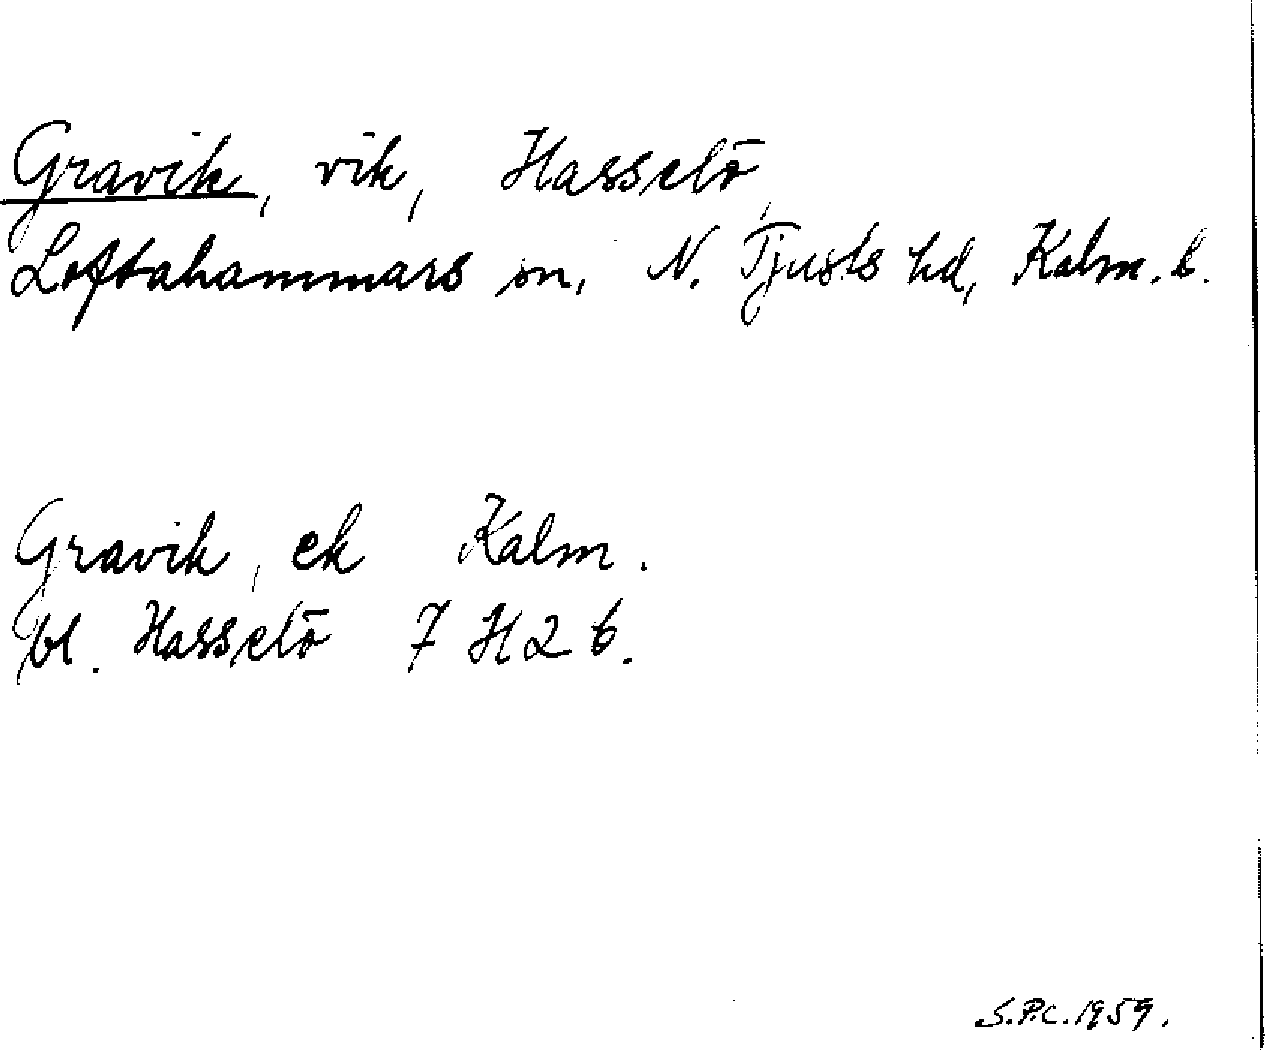 Gravik, vik, Hasselö,
Loftahammars sn, N. Tjusts hd, Kalm. l.
Gravik, ek Kalm.
bl. Hasselö 7 H 2 b.
S.P.C. 1959.